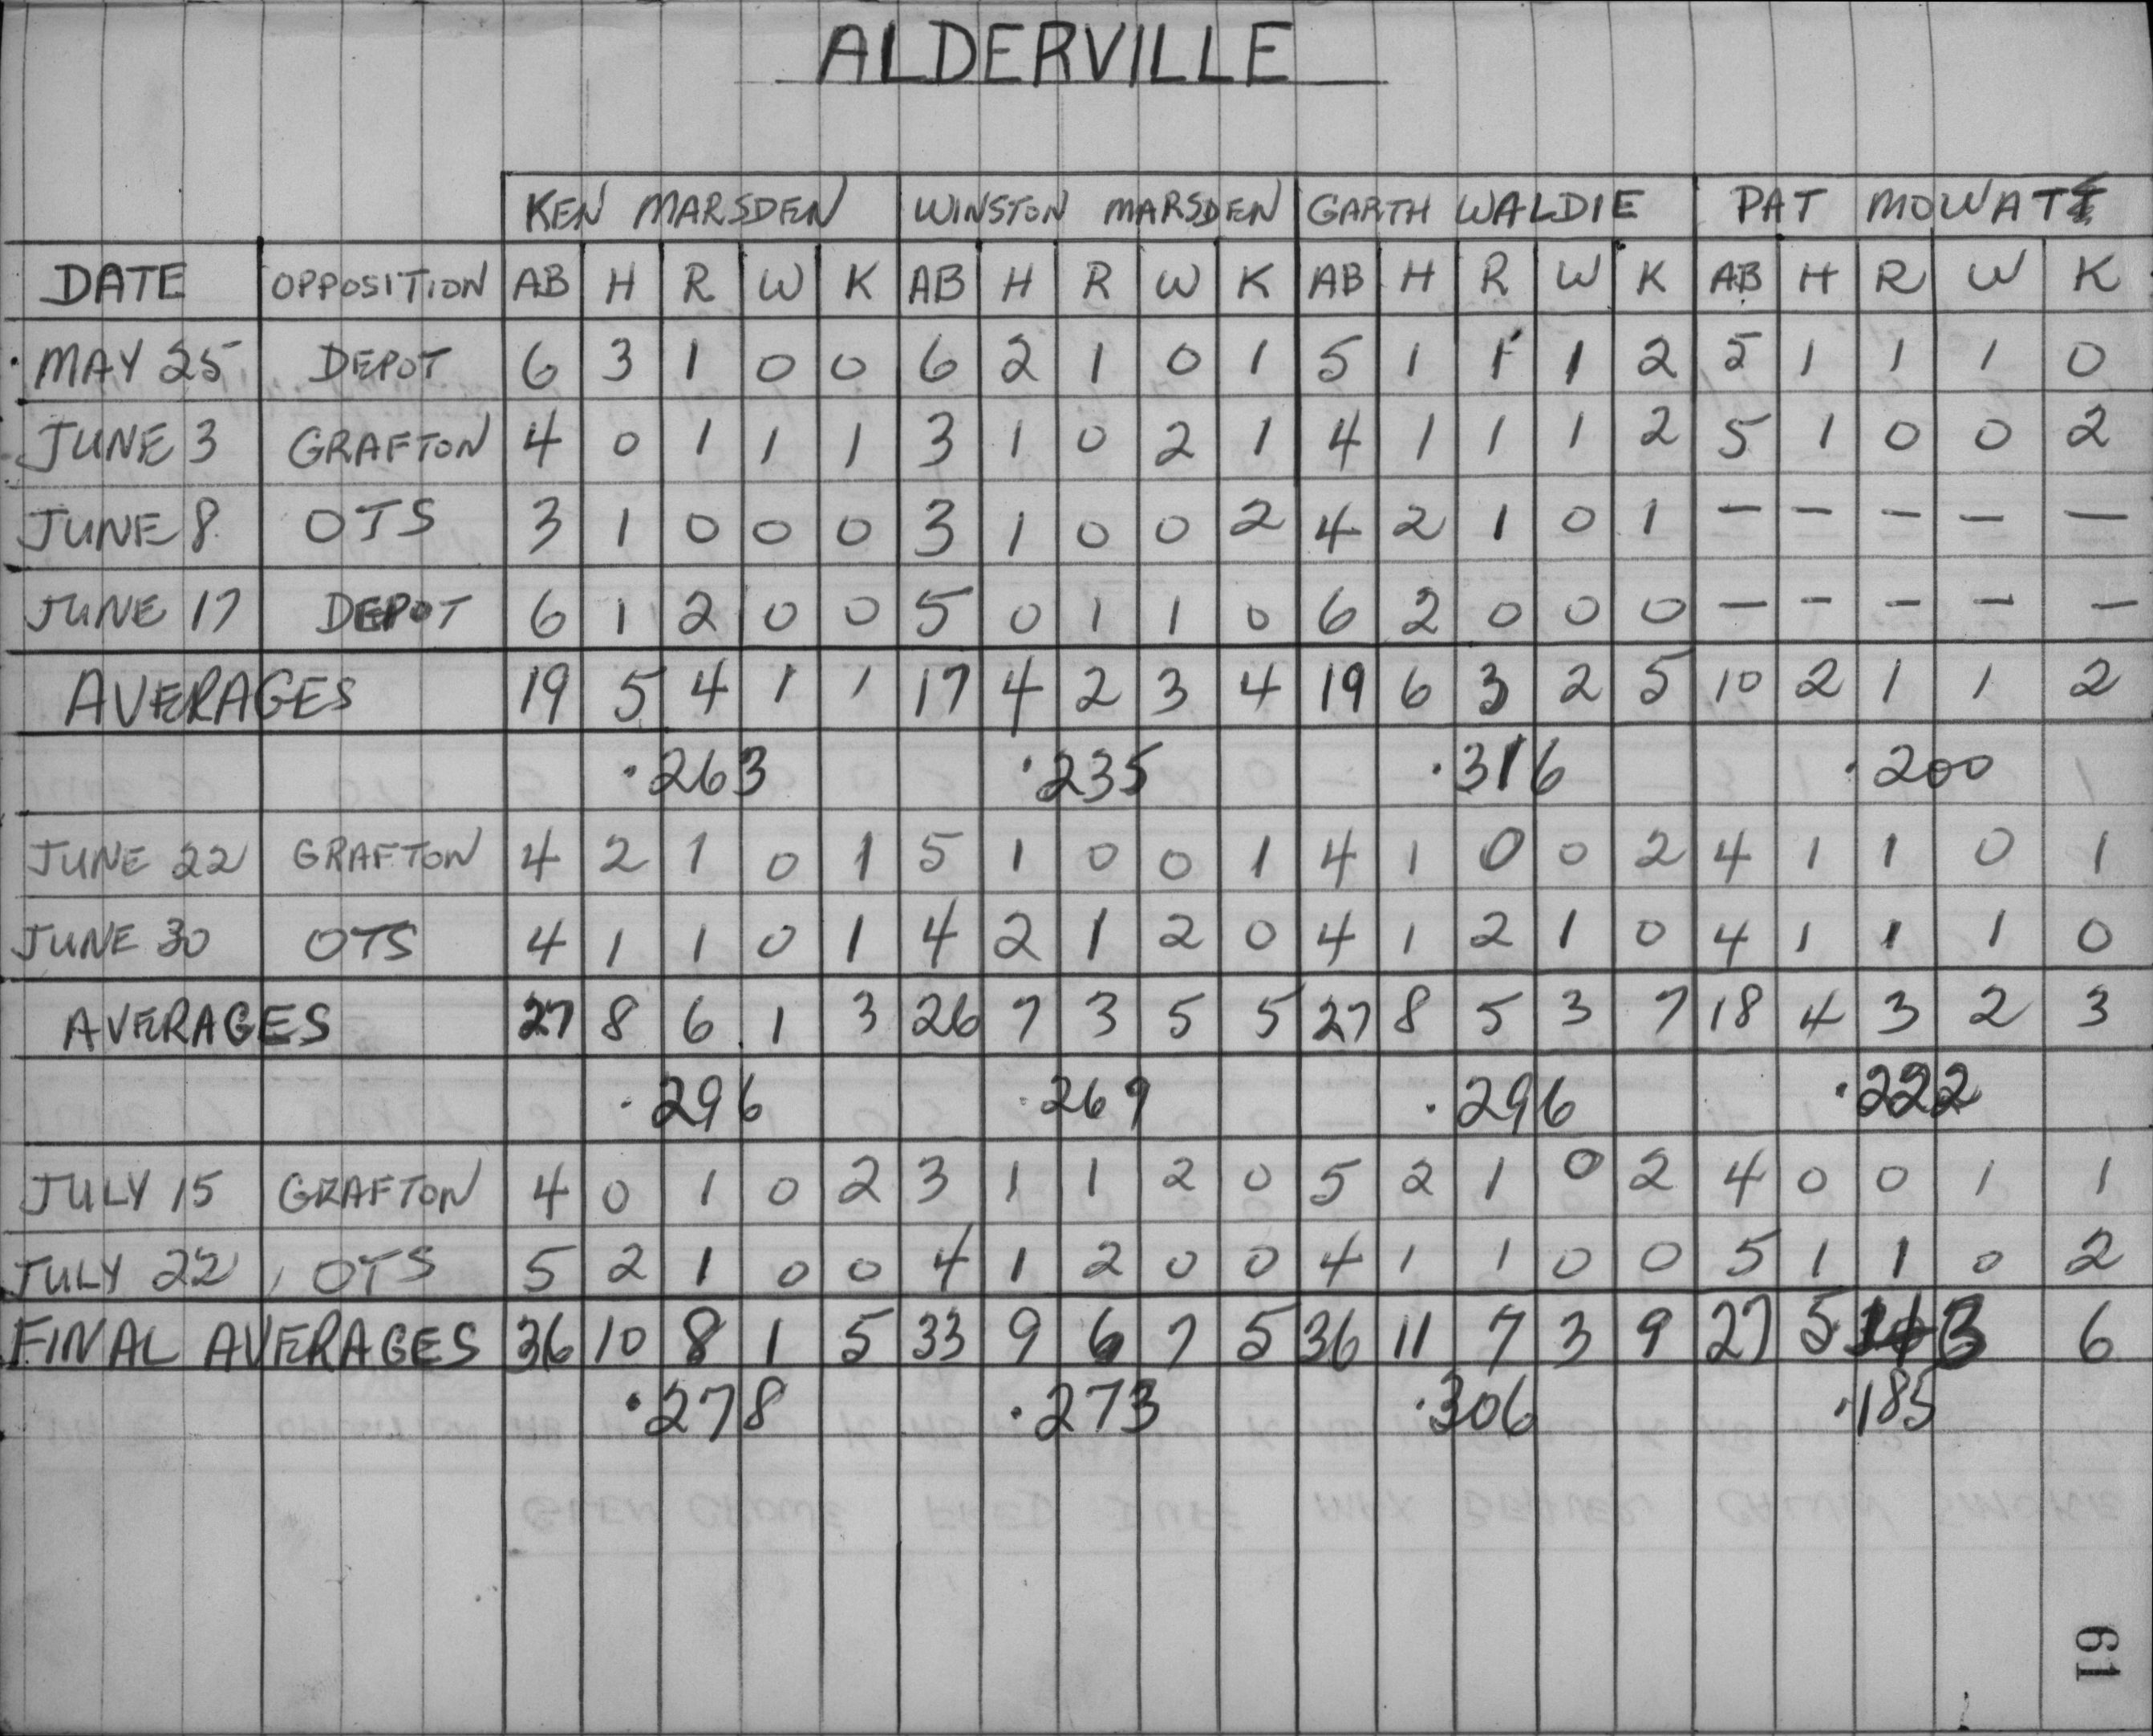 ALDERVILLE
KEN MARSDEN WINSTON MARSDEN GARTH WALDIE PAT MOWAT
DATE OPPOSITION AB H R W K AB H R W K AB H R W K AB H R W K
MAY 25 DEPOT 6 3 1 0 0 6 2 1 0 1 5 1 1 1 2 5 1 1 1 0
JUNE 3 GRAFTON 4 0 1 1 1 3 1 0 2 1 4 1 1 1 2 5 1 0 0 2
JUNE 8 OTS 3 1 0 0 0 3 1 0 0 2 4 2 1 0 1 – – – – –
JUNE 17 DEPOT 6 1 2 0 0 5 0 1 1 0 6 2 0 0 0 – – – – –
AVERAGES 19 5 4 1 1 17 4 2 3 4 19 6 3 2 5 10 2 1 1 2
.263 .235 .316 .200
JUNE 22 GRAFTON 4 2 1 0 1 5 1 0 0 1 4 1 0 0 2 4 1 1 0 1
JUNE 30 OTS 4 1 1 0 1 4 2 1 2 0 4 1 2 1 0 4 1 1 1 0
AVERAGES 27 8 6 1 3 26 7 3 5 5 27 8 5 3 7 18 4 3 2 3
.296 .269 .296 .222
JULY 15 GRAFTON 4 0 1 0 2 3 1 1 2 0 5 2 1 0 2 4 0 0 1 1
JULY 22 OTS 5 2 1 0 0 4 1 2 0 0 4 1 1 0 0 5 1 1 0 2
FINAL AVERAGES 36 10 8 1 5 33 9 6 7 5 36 11 7 3 9 27 5 3 6
.278 .273 .306 .185
61